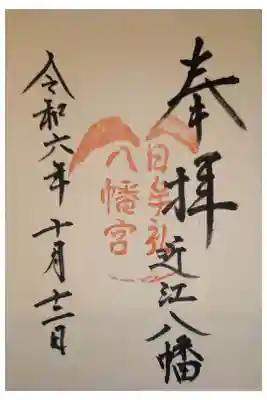 奉拝
近江八幡
日牟礼
八幡宮
令和六年十月十三日